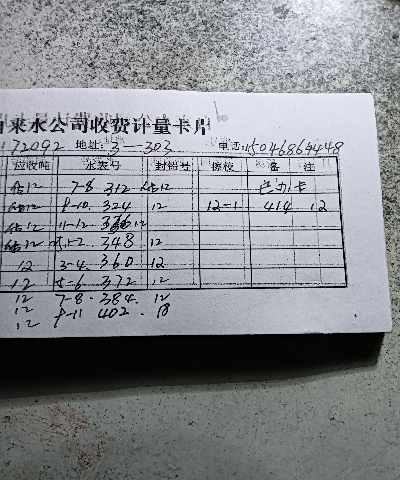 自来水公司收费计量卡片
172092 地址:3-303 电话:15046864448
应收吨 水表号 封铅号 换校 备注
估12 7-8 312 估12
估12 8-10 324 12 12-1 414 12
估12 11-12 336 12
估12 1-2 348 12
12 3-4 360 12
12 5-6 372 12
12 7-8 384 12
12 9-11 402 18
12